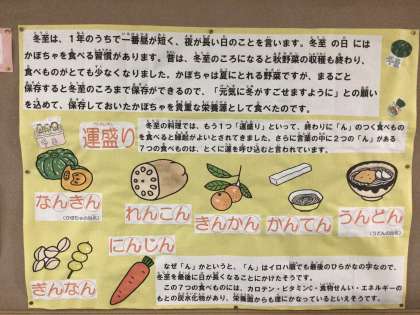 冬至は、1年のうちで一番昼が短く、夜が長い日のことを言います。冬至 の日 には
かぼちゃを食べる習慣があります。昔は、冬至のころになると秋野菜の収穫も終わり、
食べものがとても少なくなりました。かぼちゃは夏にとれる野菜ですが、まるごと
保存すると冬至のころまで保存ができるので、「元気に冬がすごせますように」との願い
を込めて、保存しておいたかぼちゃを貴重な栄養源として食べたのです。
運盛り
冬至の料理では、もう1つ「運盛り」といって、終わりに「ん」のつく食べもの
を食べると縁起がよいとされてきました。さらに言葉の中に2つの「ん」がある
7つの食べものは、とくに運を呼び込むと言われています。
なんきん
(かぼちゃの別名)
れんこん
きんかん
かんてん
うんどん
(うどんの別名)
ぎんなん
にんじん
なぜ「ん」かというと、「ん」はイロハ順でも最後のひらがなの字なので、
冬至を最後に日が長くなることにかけたそうです。
この7つの食べものには、カロテン・ビタミンC・食物せんい・エネルギーの
もとの炭水化物があり、栄養面からも理にかなっているといえそうです。